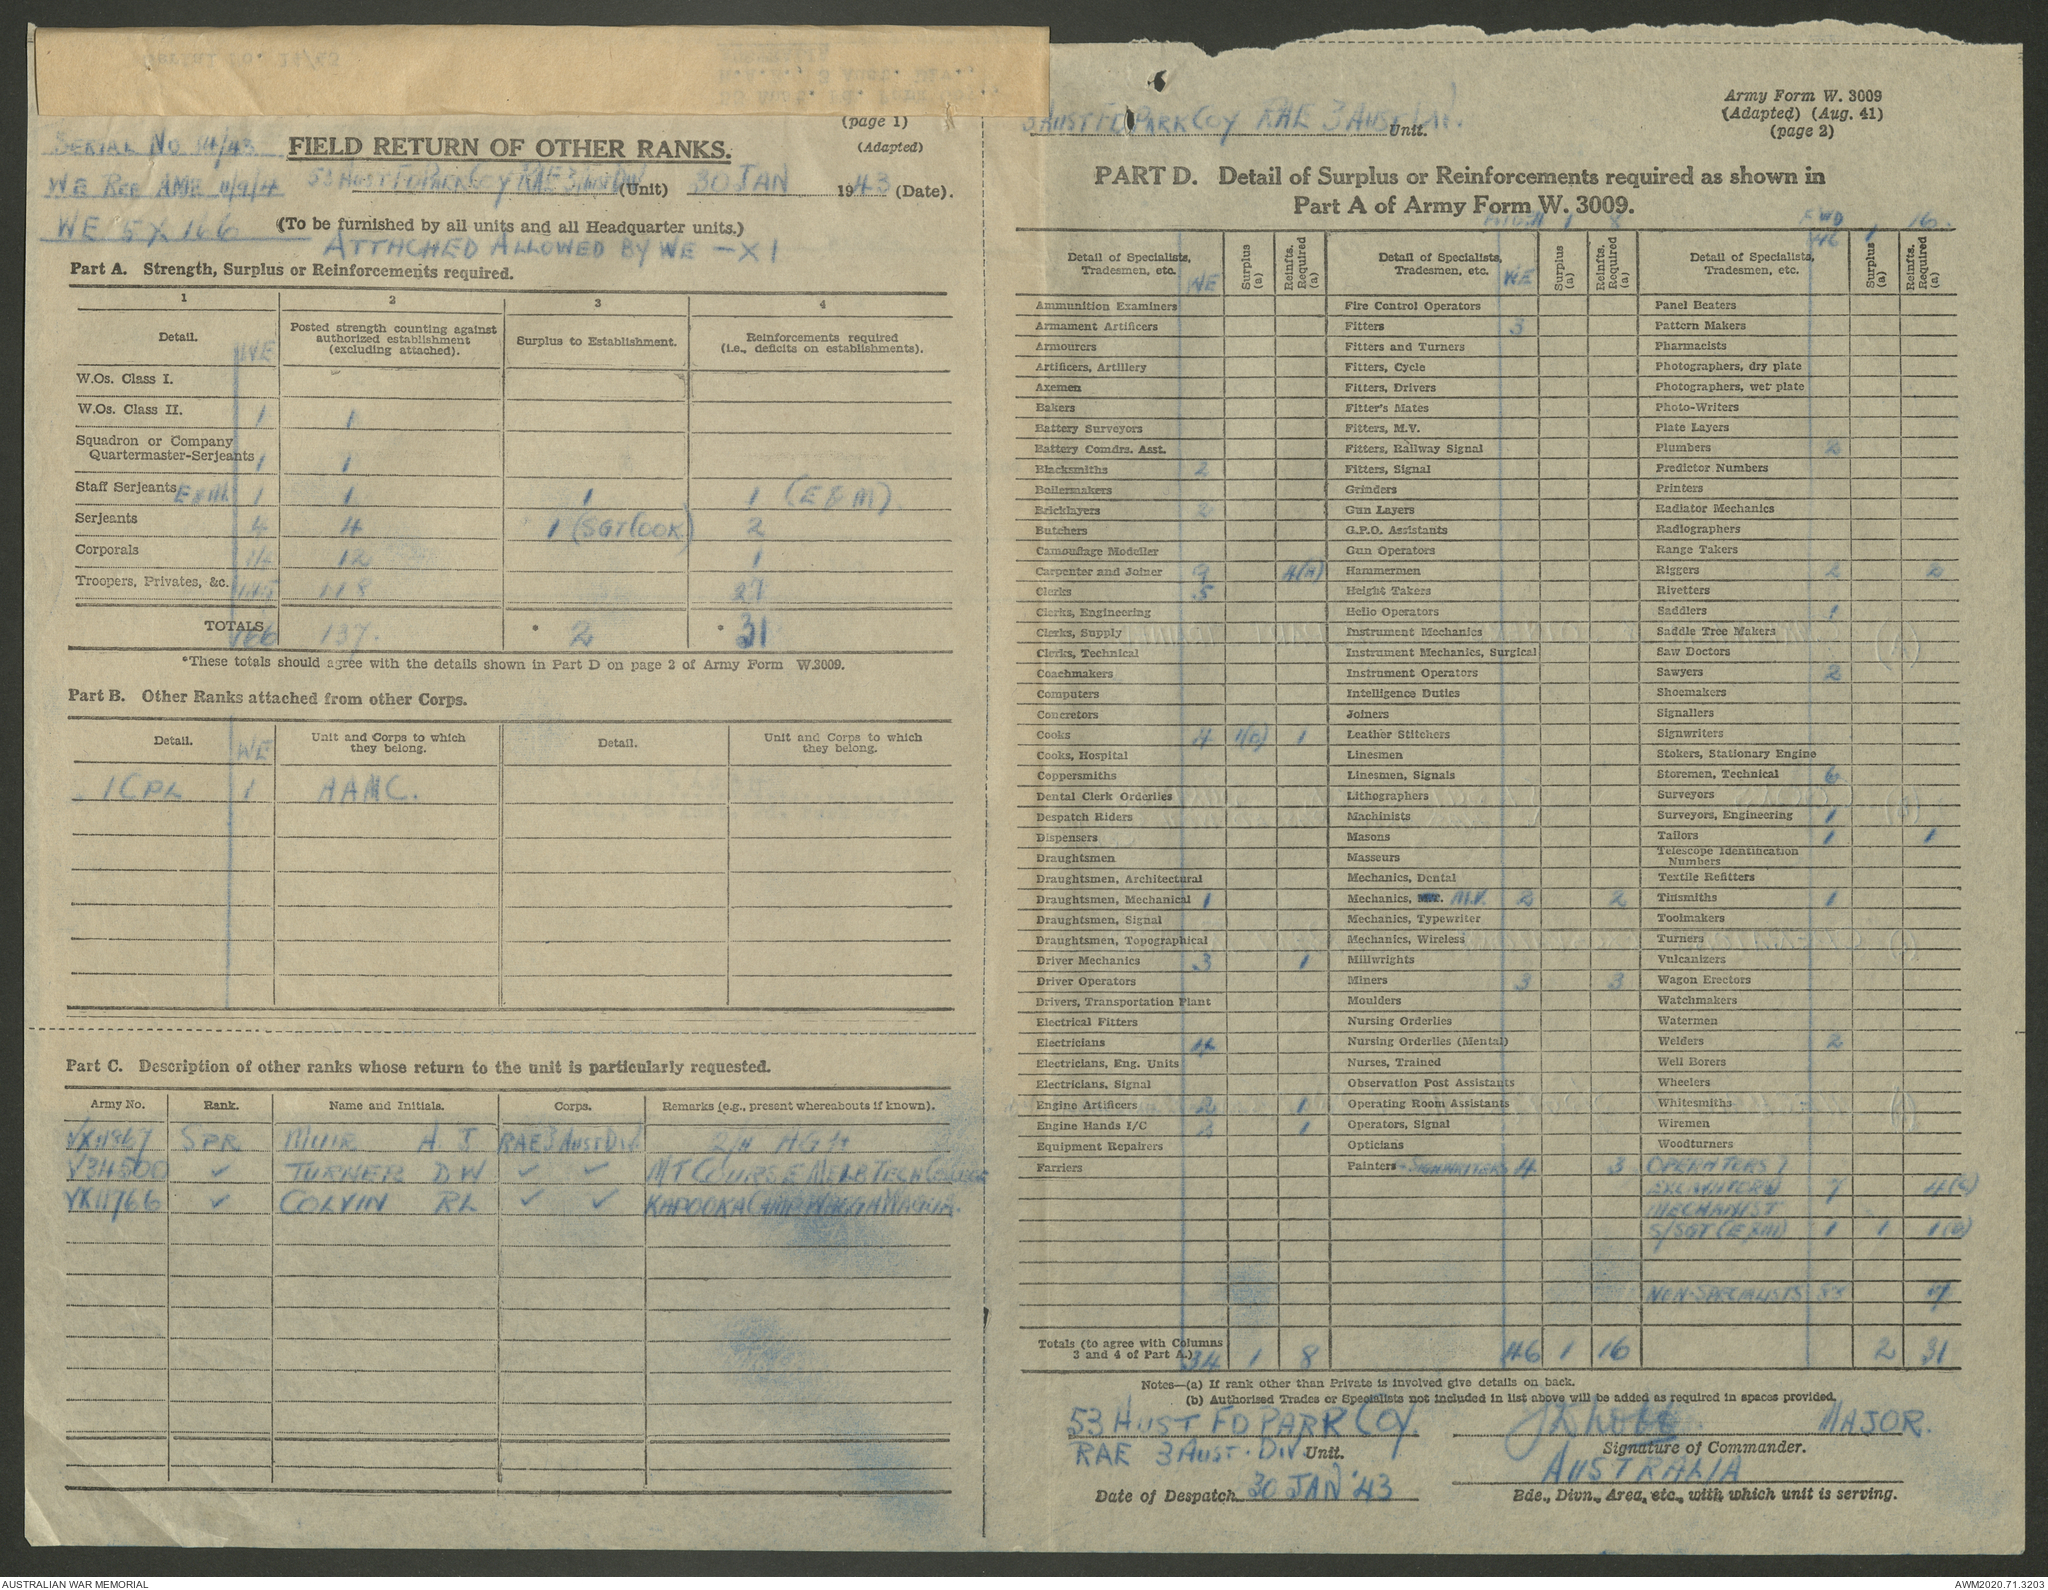 (page 1)
SERIAL No
FIELD RETURN OF OTHER RANKS.
(Adapted)
53 AUST FD PARK COY RAE 3 AUST DIV (Unit) 30 JAN 1943 (Date).
WE 5X 166
(To be furnished by all units and all Headquarter units.)
ATTACHED ALLOWED BY WE – X 1
Part A. Strength, Surplus or Reinforcements required.
1 2 3 4
Detail. WE Posted strength counting against authorized establishment (excluding attached). Surplus to Establishment. Reinforcements required (i.e., deficits on establishments).
W.Os. Class I.
W.Os. Class II. 1 1
Squadron or Company
Quartermaster-Serjeants 1 1
Staff Serjeants E&M 1 1 1 1 (E & M)
Serjeants 4 4 1 (SGT COOK) 2
Corporals 12 1
Troopers, Privates, &c. 118 27
TOTALS 166 137. * 2 * 31
*These totals should agree with the details shown in Part D on page 2 of Army Form W.3009.
Part B. Other Ranks attached from other Corps.
Detail. WE Unit and Corps to which they belong. Detail. Unit and Corps to which they belong.
1 CPL 1 AAMC.
Part C. Description of other ranks whose return to the unit is particularly requested.
Army No. Rank. Name and Initials. Corps. Remarks (e.g., present whereabouts if known).
VX11867 SPR MUIR A J RAE 3 AUST DIV 2/4 AGH
V34500 ✓ TURNER D W ✓ ✓ MT COURSE MELB TECH COLLEGE
VX11766 ✓ COLVIN RL ✓ ✓ KAPOOKA CAMP WAGGA WAGGA.
Army Form W. 3009
(Adapted) (Aug. 41)
(page 2)
AUST FD PARK COY RAE 3 AUST DIV. Unit.
PART D. Detail of Surplus or Reinforcements required as shown in
Part A of Army Form W. 3009.
Detail of Specialists, Tradesmen, etc. WE Surplus (a) Reinfts. Required (a)
Ammunition Examiners
Armament Artificers
Armourers
Artificers, Artillery
Axemen
Bakers
Battery Surveyors
Battery Comdrs. Asst.
Blacksmiths 2
Boilermakers
Bricklayers 2
Butchers
Camouflage Modeller
Carpenter and Joiner 9 4(A)
Clerks 5
Clerks, Engineering
Clerks, Supply
Clerks, Technical
Coachmakers
Computers
Concretors
Cooks 4 1(B) 1
Cooks, Hospital
Coppersmiths
Dental Clerk Orderlies
Despatch Riders
Dispensers
Draughtsmen
Draughtsmen, Architectural
Draughtsmen, Mechanical 1
Draughtsmen, Signal
Draughtsmen, Topographical
Driver Mechanics 3 1
Driver Operators
Drivers, Transportation Plant
Electrical Fitters
Electricians 4
Electricians, Eng. Units
Electricians, Signal
Engine Artificers 2 1
Engine Hands I/C 2 1
Equipment Repairers
Farriers
Totals (to agree with Columns
3 and 4 of Part A.) 34 1 8
Detail of Specialists, Tradesmen, etc. WE Surplus (a) Reinfts. Required (a)
Fire Control Operators
Fitters 3
Fitters and Turners
Fitters, Cycle
Fitters, Drivers
Fitter's Mates
Fitters, M.V.
Fitters, Railway Signal
Fitters, Signal
Grinders
Gun Layers
G.P.O. Assistants
Gun Operators
Hammermen
Height Takers
Helio Operators
Instrument Mechanics
Instrument Mechanics, Surgical
Instrument Operators
Intelligence Duties
Joiners
Leather Stitchers
Linesmen
Linesmen, Signals
Lithographers
Machinists
Masons
Masseurs
Mechanics, Dental
Mechanics, M.V. 2 2
Mechanics, Typewriter
Mechanics, Wireless
Millwrights
Miners 3 3
Moulders
Nursing Orderlies
Nursing Orderlies (Mental)
Nurses, Trained
Observation Post Assistants
Operating Room Assistants
Operators, Signal
Opticians
Painters - SIGNWRITERS 4 3
46 1 16
Detail of Specialists, Tradesmen, etc. FWD 46 1 16. Surplus (a) Reinfts. Required (a)
Panel Beaters
Pattern Makers
Pharmacists
Photographers, dry plate
Photographers, wet plate
Photo-Writers
Plate Layers
Plumbers 2
Predictor Numbers
Printers
Radiator Mechanics
Radiographers
Range Takers
Riggers 2 2
Rivetters
Saddlers 1
Saddle Tree Makers
Saw Doctors
Sawyers 2
Shoemakers
Signallers
Signwriters
Stokers, Stationary Engine
Storemen, Technical 6
Surveyors
Surveyors, Engineering 1
Tailors 1 1
Telescope Identification
Numbers
Textile Refitters
Tinsmiths 1
Toolmakers
Turners
Vulcanizers
Wagon Erectors
Watchmakers
Watermen
Welders 2
Well Borers
Wheelers
Whitesmiths
Wiremen
Woodturners
OPERATORS
EXCAVATORS 7 4(C)
MECHANIST
S/SGT (E&M) 1 1 1(D)
NON-SPECIALISTS
2 31
Notes—(a) If rank other than Private is involved give details on back.
(b) Authorised Trades or Specialists not included in list above will be added as required in spaces provided.
53 AUST FD PARK COY.
RAE 3 AUST. DIV Unit.
MAJOR.
Signature of Commander.
AUSTRALIA
Date of Despatch 30 JAN '43
Bde., Divn., Area, etc., with which unit is serving.
AUSTRALIAN WAR MEMORIAL
AWM2020.71.3203